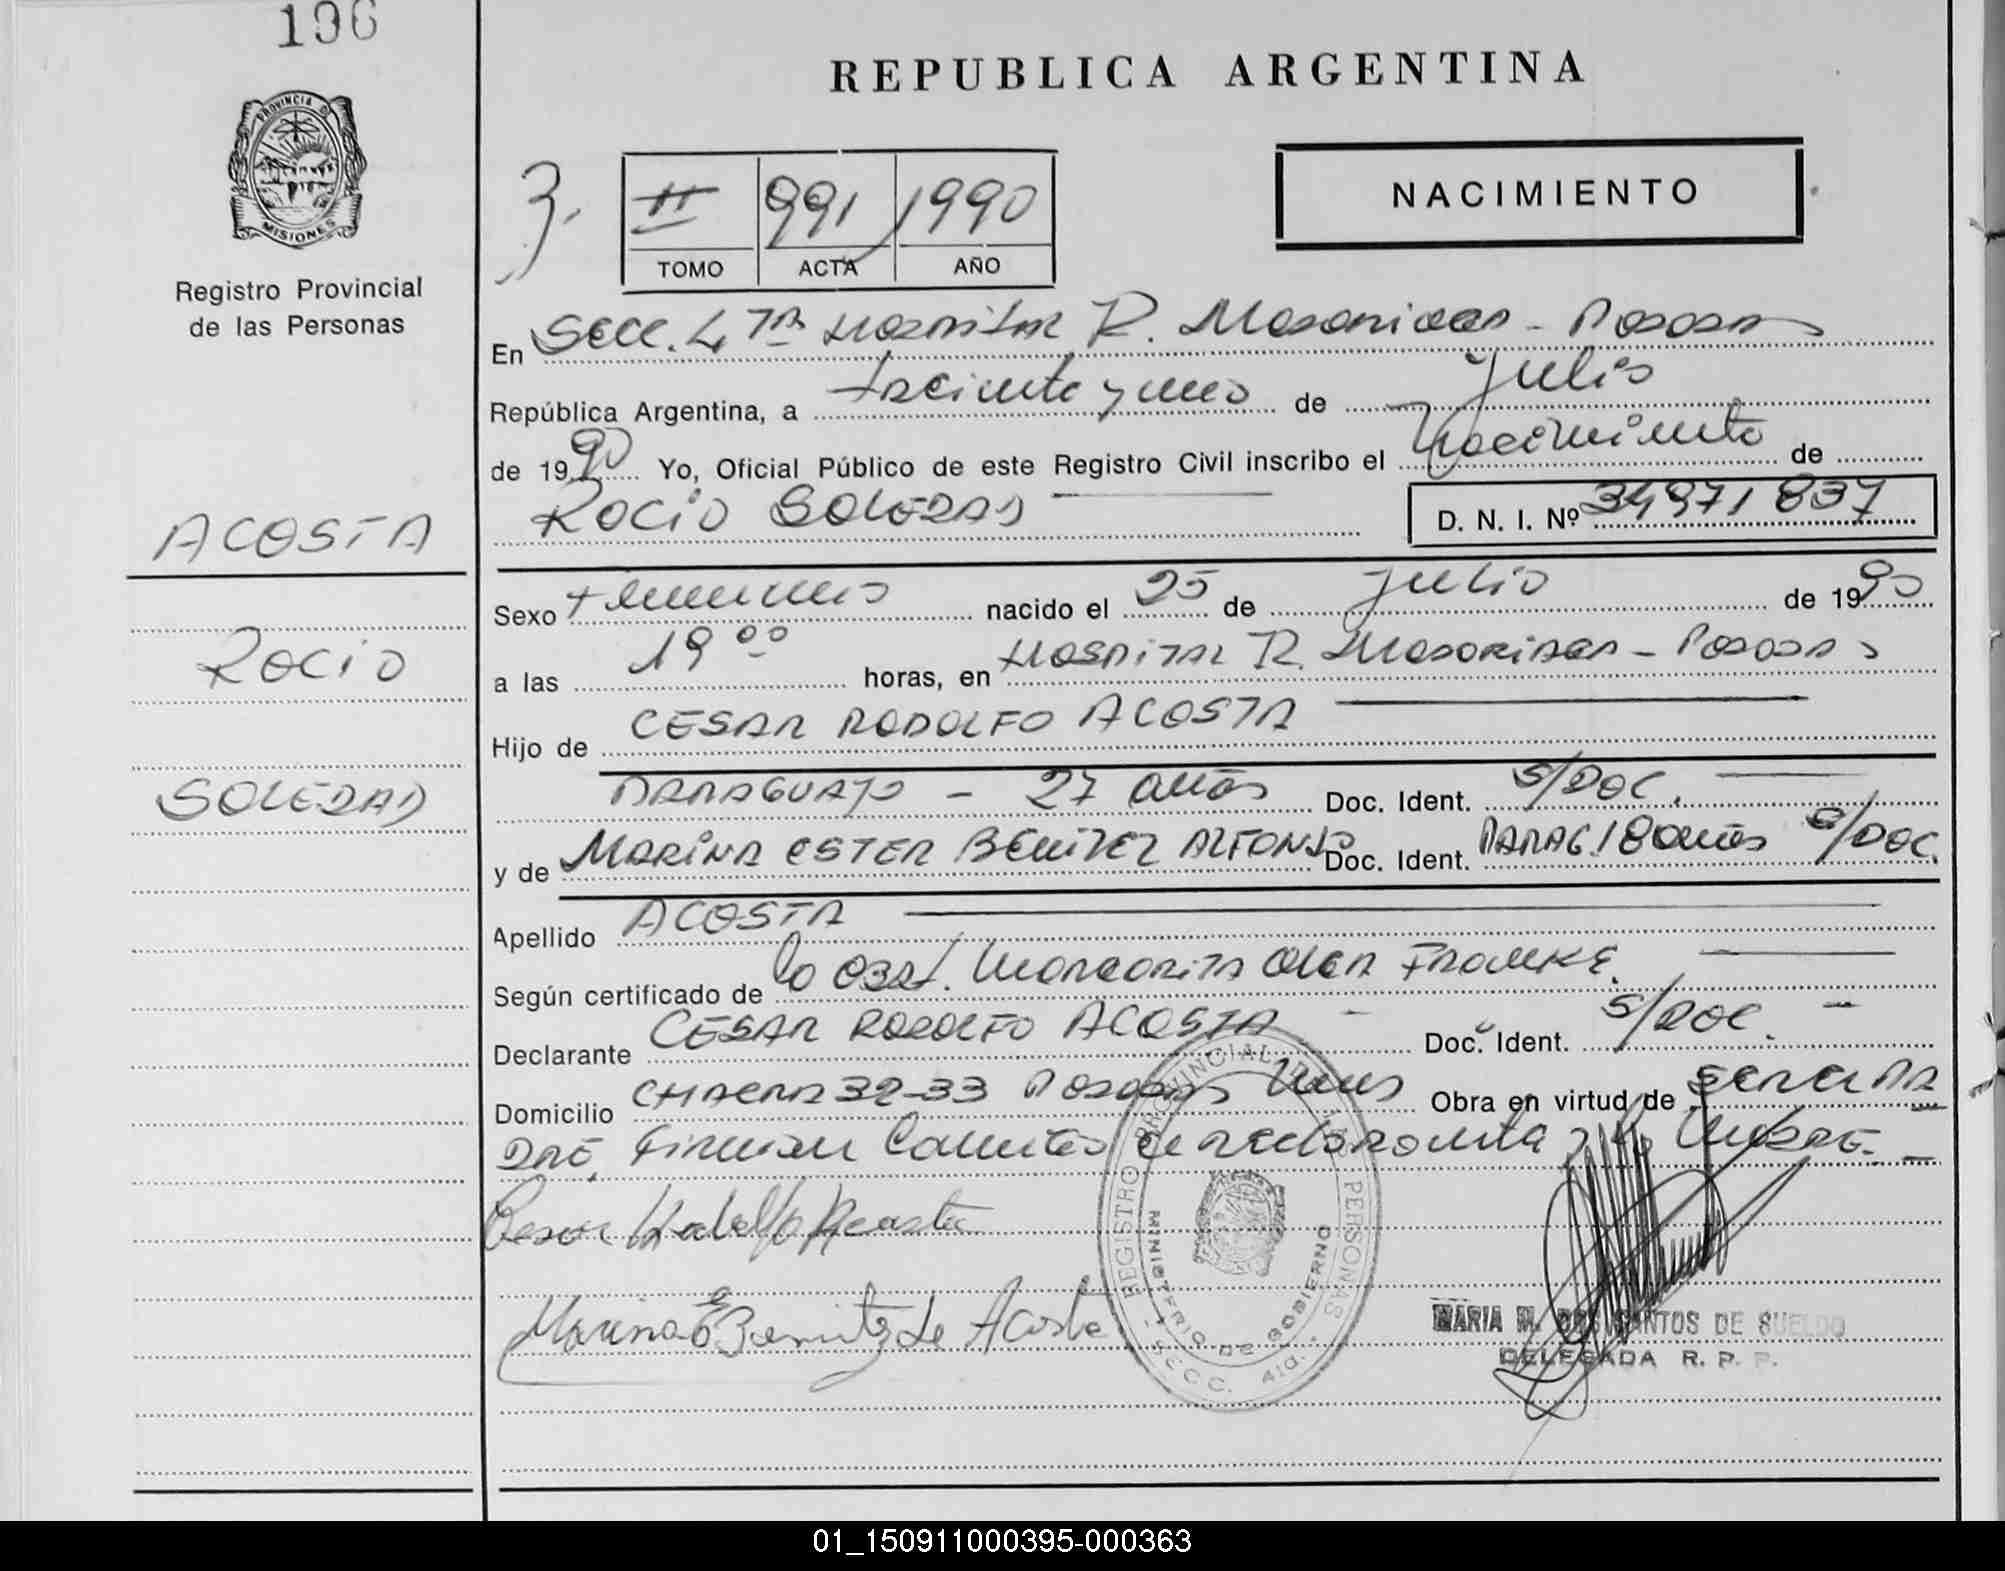 196
REPUBLICA ARGENTINA
PROVINCIA D MISIONES
Registro Provincial
de las Personas
NACIMIENTO
3.
II 991 1990
TOMO ACTA AÑO
En Secc. 4ta Hospital R. Madariaga - Posadas
República Argentina, a treinta y uno de Julio
de 1990 Yo, Oficial Público de este Registro Civil inscribo el Nacimiento de
ROCIO SOLEDAD
D. N. I. Nº 34971837
ACOSTA
ROCIO
SOLEDAD
Sexo Femenino nacido el 25 de Julio de 1990
a las 19 00 horas, en Hospital R. Madariaga - Posadas
Hijo de CESAR RODOLFO ACOSTA
PARAGUAYO - 27 años Doc. Ident. S/DOC.
y de MARINA ESTER BENITEZ ALFONSO Doc. Ident. PARAG. 18 años S/DOC.
Apellido ACOSTA
Según certificado de la Obst. Margarita Olga Franke.
Declarante CESAR RODOLFO ACOSTA - Doc. Ident. S/DOC. -
Domicilio CHACRA 32-33 Posadas Mnes Obra en virtud de SER EL PA
DRE. Firman Conmigo el declarante y la Madre. -
Cesar Rodolfo Acosta
Marina E Benitez de Acosta
REGISTRO PROVINCIAL DE LAS PERSONAS
MINISTERIO DE GOBIERNO
- SECC. 4ta. -
MARIA M. DOS SANTOS DE SUELDO
DELEGADA R. P. P.
01_150911000395-000363